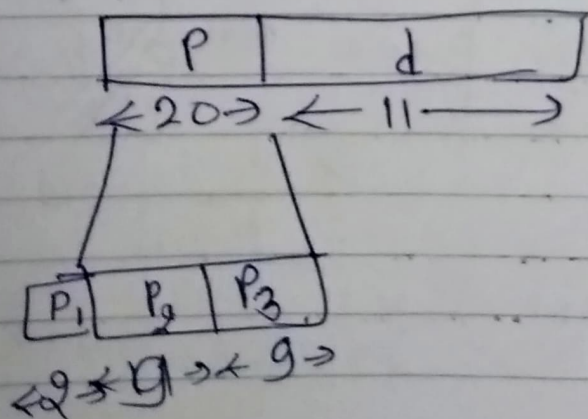 P d
<20> <11>
P1 P2 P3
<2> <9> <9>